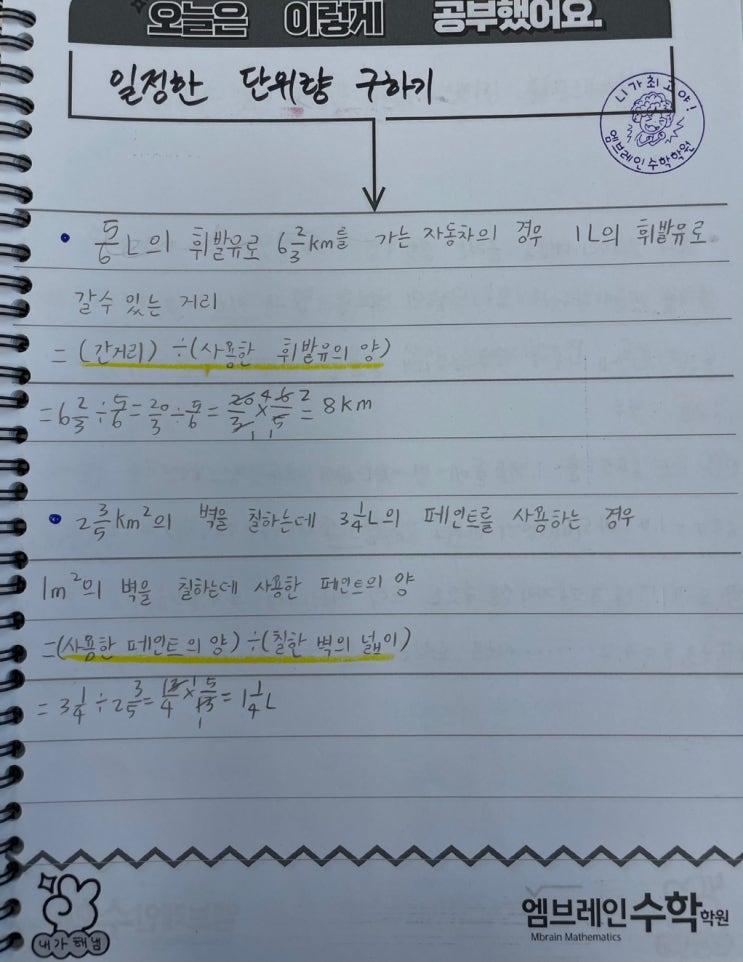 오늘은 이렇게 공부했어요.
일정한 단위량 구하기
니가최고야!
엠브레인수학학원
• 5/6L의 휘발유로 6 2/3km를 가는 자동차의 경우 1L의 휘발유로
갈수 있는 거리
= (간거리) ÷(사용한 휘발유의 양)
= 6 2/3 ÷ 5/6 = 20/3 ÷ 5/6 = 20/3 4 × 6/5 2 = 8km
1 1
• 2 3/5 km²의 벽을 칠하는데 3 1/4L의 페인트를 사용하는 경우
1m²의 벽을 칠하는데 사용한 페인트의 양
=(사용한 페인트의 양) ÷(칠한 벽의 넓이)
= 3 1/4 ÷ 2 3/5 = 13/4 1 × 5/13 = 1 1/4 L
1
내가해냄
엠브레인 수학학원
Mbrain Mathematics